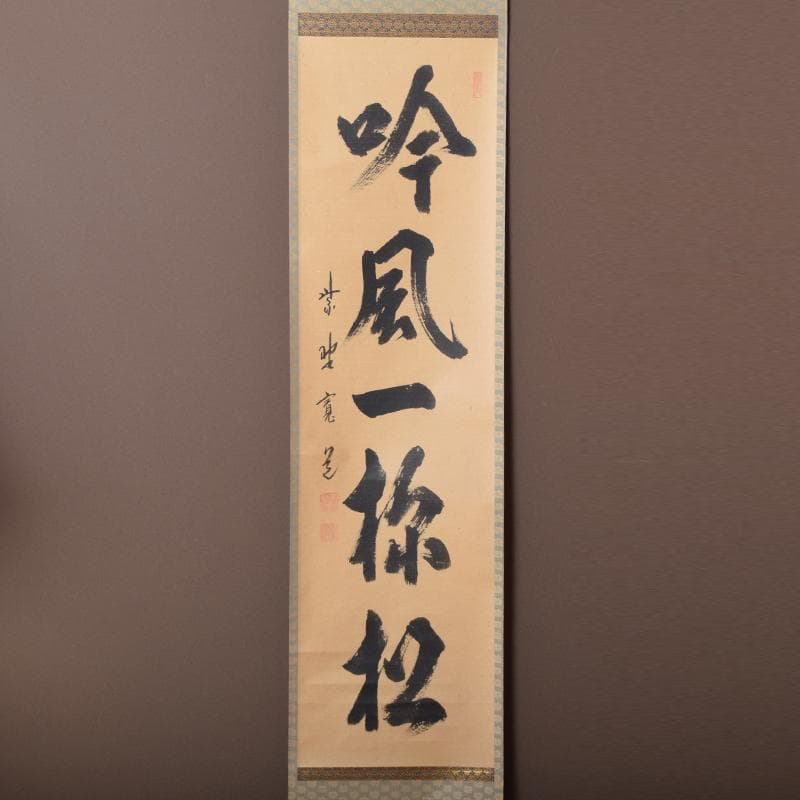 吟風一樣松
紫野寛道